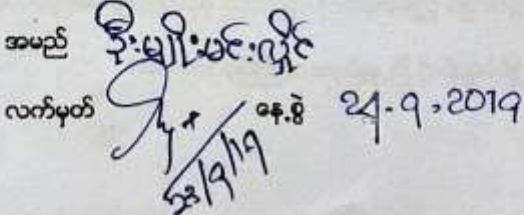 အမည် ဦးမျိုးမင်းလှိုင်
လက်မှတ် နေ့စွဲ 24.9.2019